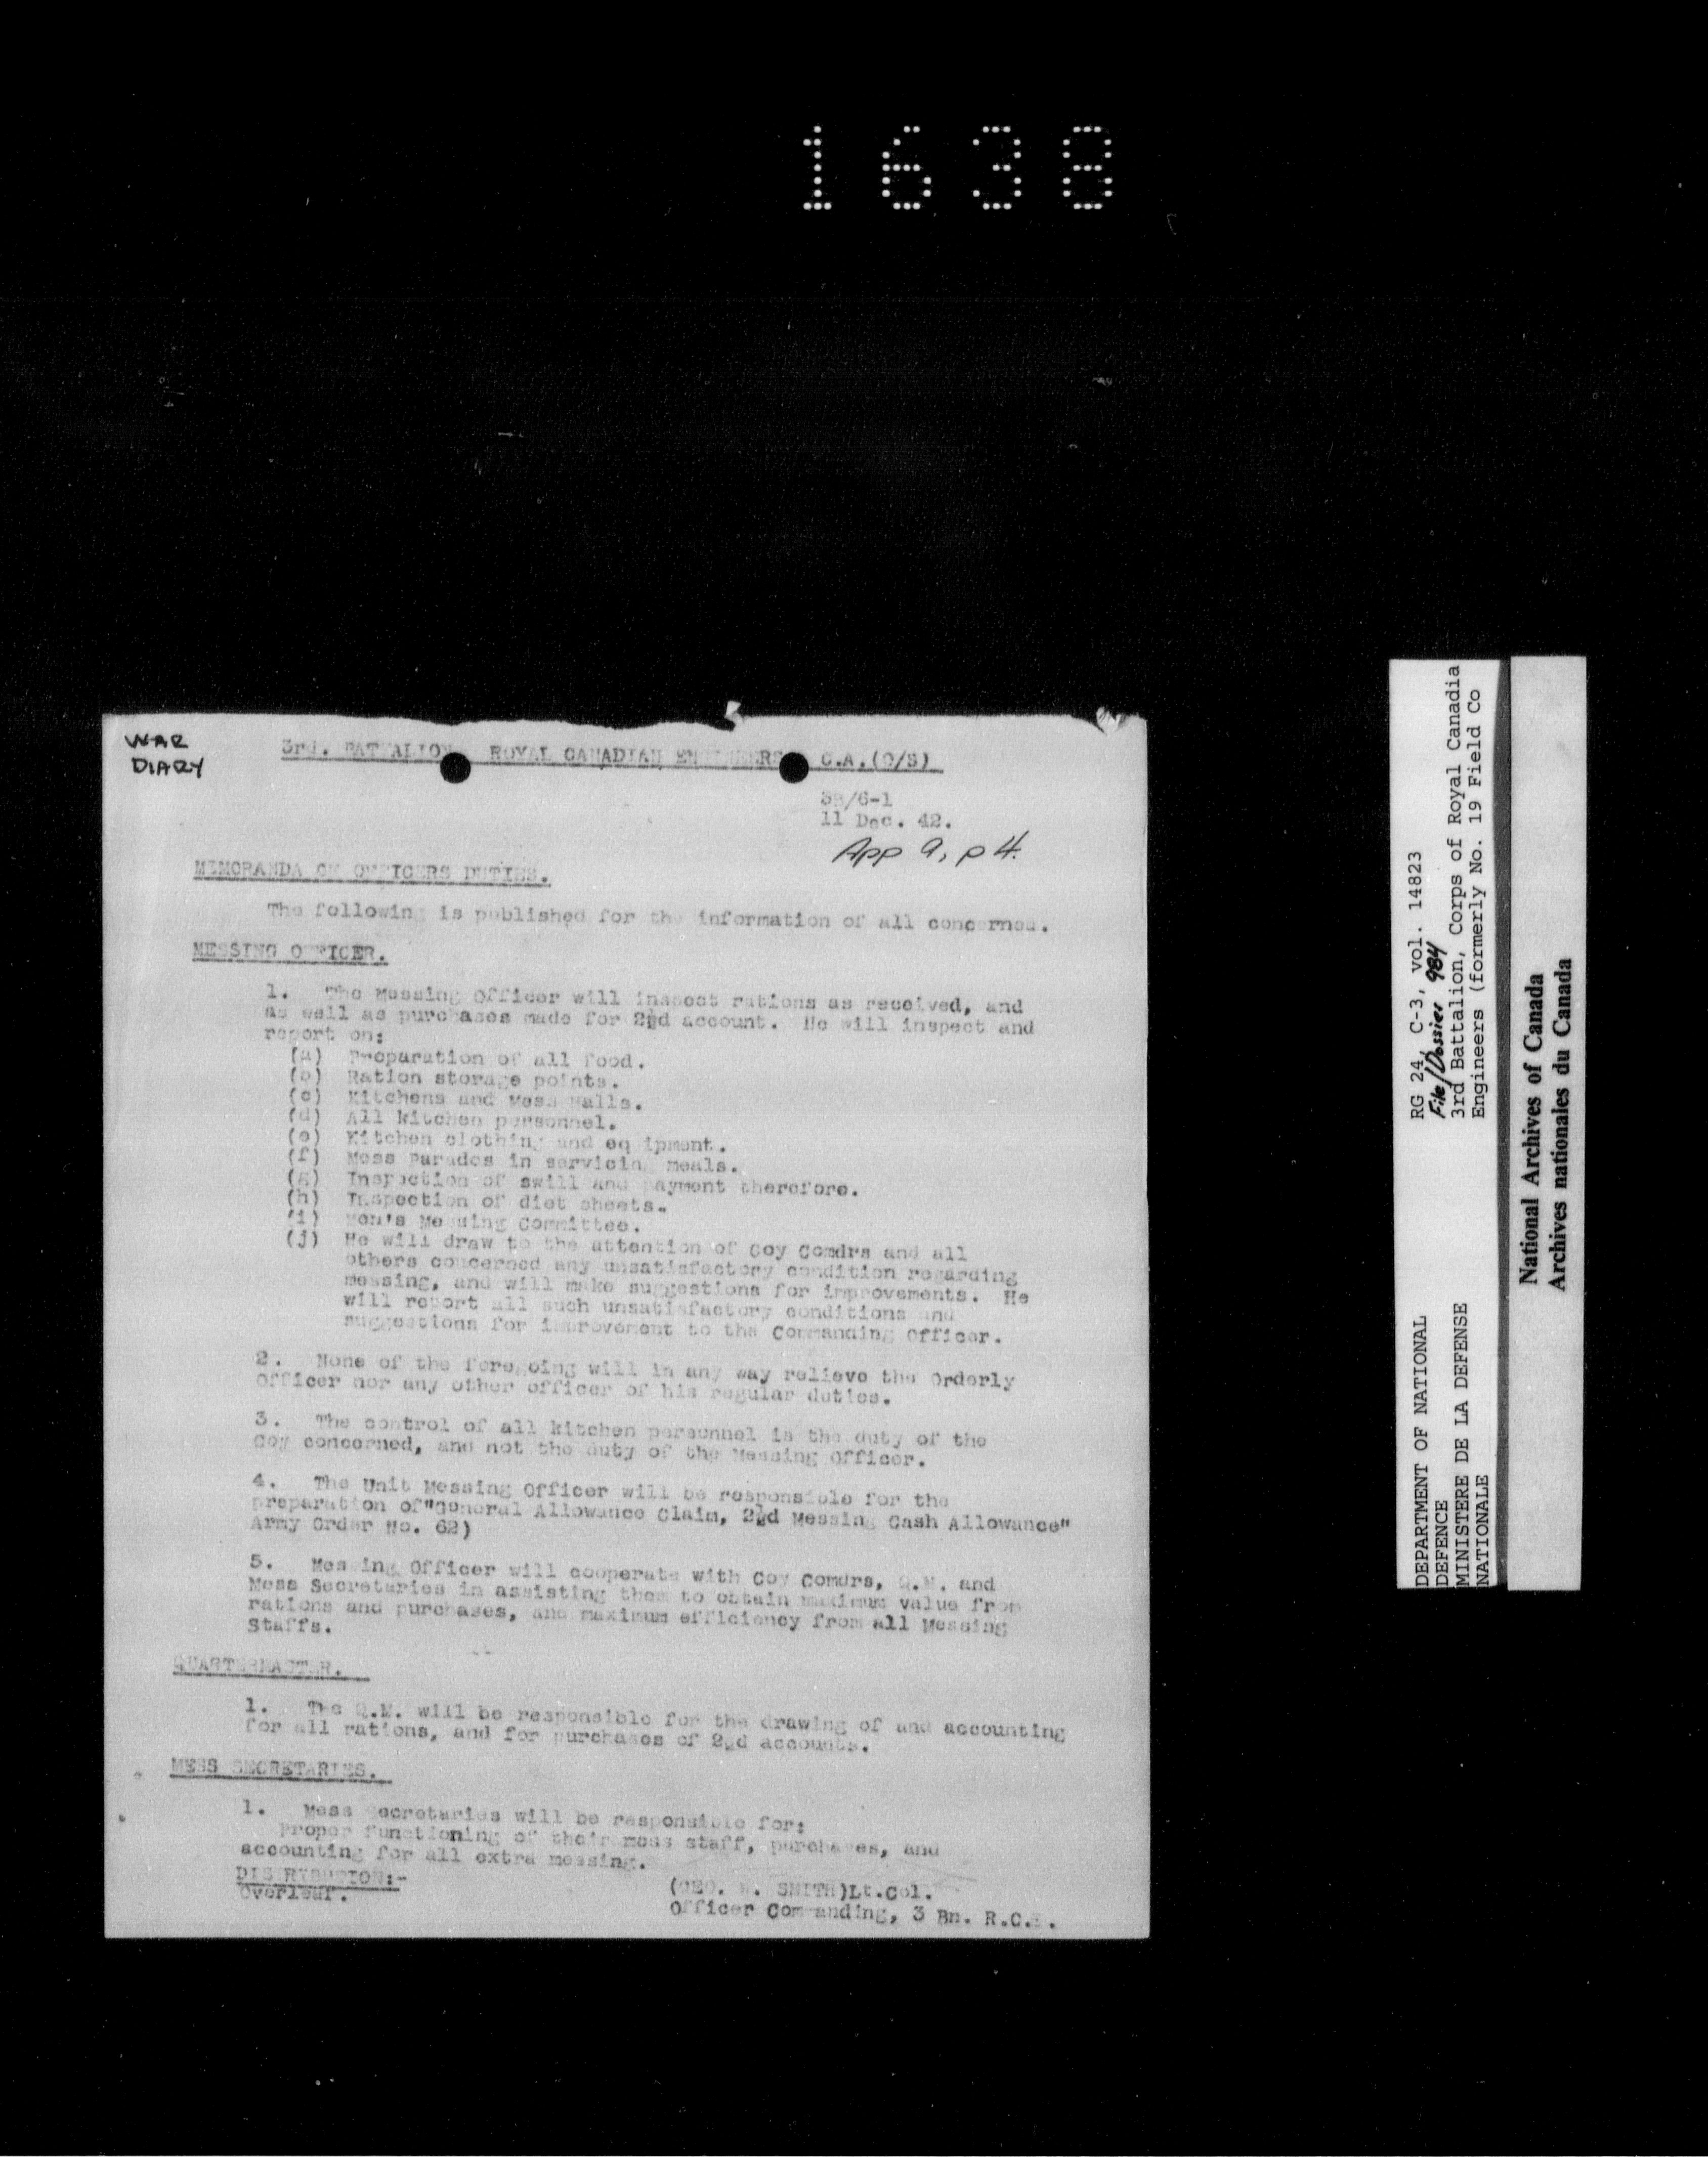 1638
WAR
DIARY
3rd. BATTALION ROYAL CANADIAN ENGINEERS C.A.(O/S)
3B/6-1
11 Dec. 42.
App 9, p 4.
MEMORANDA ON OFFICERS DUTIES.
The following is published for the information of all concerned.
MESSING OFFICER.
1. The Messing Officer will inspect rations as received, and
as well as purchases made for 2½d account. He will inspect and
report on:
(a) Preparation of all food.
(b) Ration storage points.
(c) Kitchens and Mess Halls.
(d) All kitchen personnel.
(e) Kitchen clothing and equipment.
(f) Mess Parades in servicing meals.
(g) Inspection of swill and payment therefore.
(h) Inspection of diet sheets.
(i) Men's Messing Committee.
(j) He will draw to the attention of Coy Comdrs and all
others concerned any unsatisfactory condition regarding
messing, and will make suggestions for improvements. He
will report all such unsatisfactory conditions and
suggestions for improvement to the Commanding Officer.
2. None of the foregoing will in any way relieve the Orderly
Officer nor any other officer of his regular duties.
3. The control of all kitchen personnel is the duty of the
Coy concerned, and not the duty of the Messing Officer.
4. The Unit Messing Officer will be responsible for the
preparation of"General Allowance Claim, 2½d Messing Cash Allowance"
Army Order No. 62)
5. Messing Officer will cooperate with Coy Comdrs, Q.M. and
Mess Secretaries in assisting them to obtain maximum value from
rations and purchases, and maximum efficiency from all Messing
Staffs.
QUARTERMASTER.
1. The Q.M. will be responsible for the drawing of and accounting
for all rations, and for purchases of 2½d accounts.
MESS SECRETARIES.
1. Mess Secretaries will be responsible for:
Proper functioning of their mess staff, purchases, and
accounting for all extra messing.
DISTRIBUTION:-
Overleaf.
(GEO. W. SMITH)Lt.Col.
Officer Commanding, 3 Bn. R.C.E.
RG 24, C-3, vol. 14823
File/Dossier 984
3rd Battalion, Corps of Royal Canadia
Engineers (formerly No. 19 Field Co
DEPARTMENT OF NATIONAL
DEFENCE
MINISTERE DE LA DEFENSE
NATIONALE
National Archives of Canada
Archives nationales du Canada